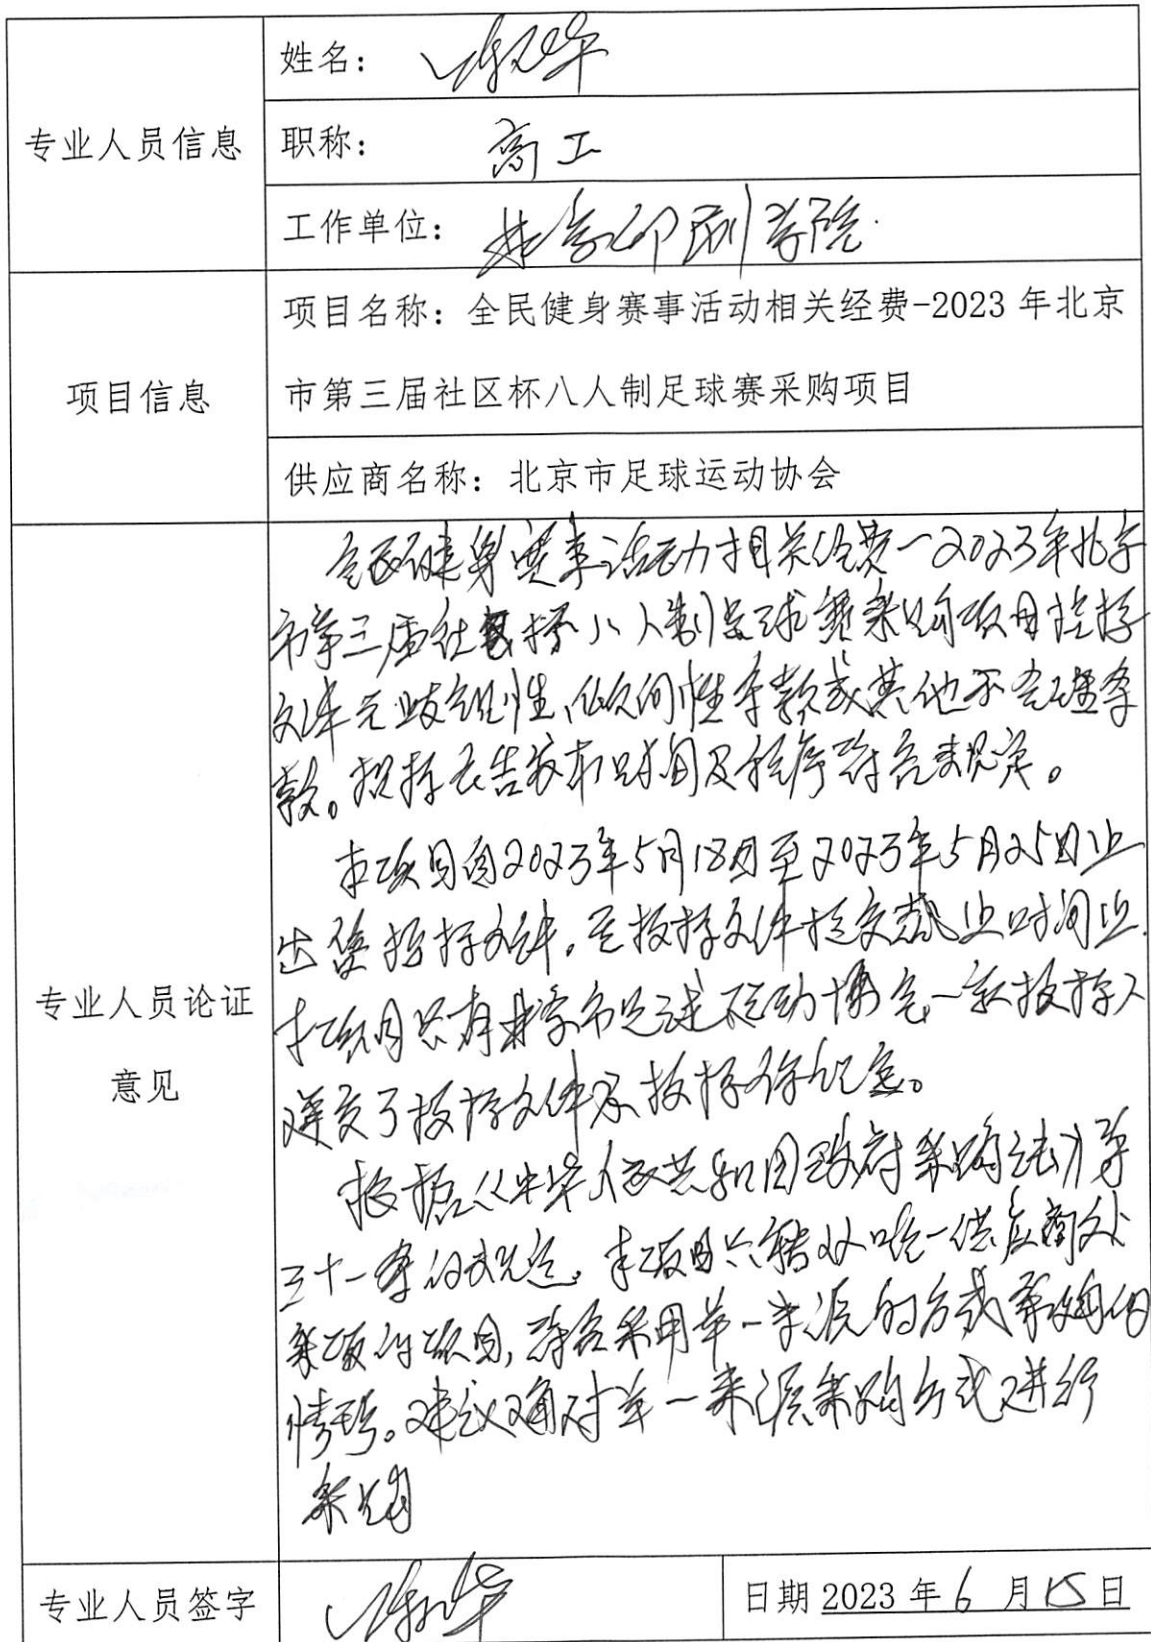 专业人员信息
姓名：
职称： 高工
工作单位： 北京印刷学院
项目信息
项目名称：全民健身赛事活动相关经费-2023 年北京
市第三届社区杯八人制足球赛采购项目
供应商名称：北京市足球运动协会
专业人员论证
意见
全民健身赛事活动相关经费-2023年北京
市第三届社区杯八人制足球赛采购项目招标
文件无歧视性、倾向性条款或其他不合理条
款。招标公告发布时间及程序符合规定。
本项目自2023年5月18日至2023年5月25日止
出售招标文件，至投标文件提交截止时间止
本项目只有北京市足球运动协会一家投标人
递交了投标文件
根据《中华人民共和国政府采购法》第
三十一条的规定，本项目只能从唯一供应商处
采购的项目，符合采用单一来源的方式采购的
情形。建议通过单一来源采购方式进行
采购
专业人员签字
日期 2023 年 6 月 15 日